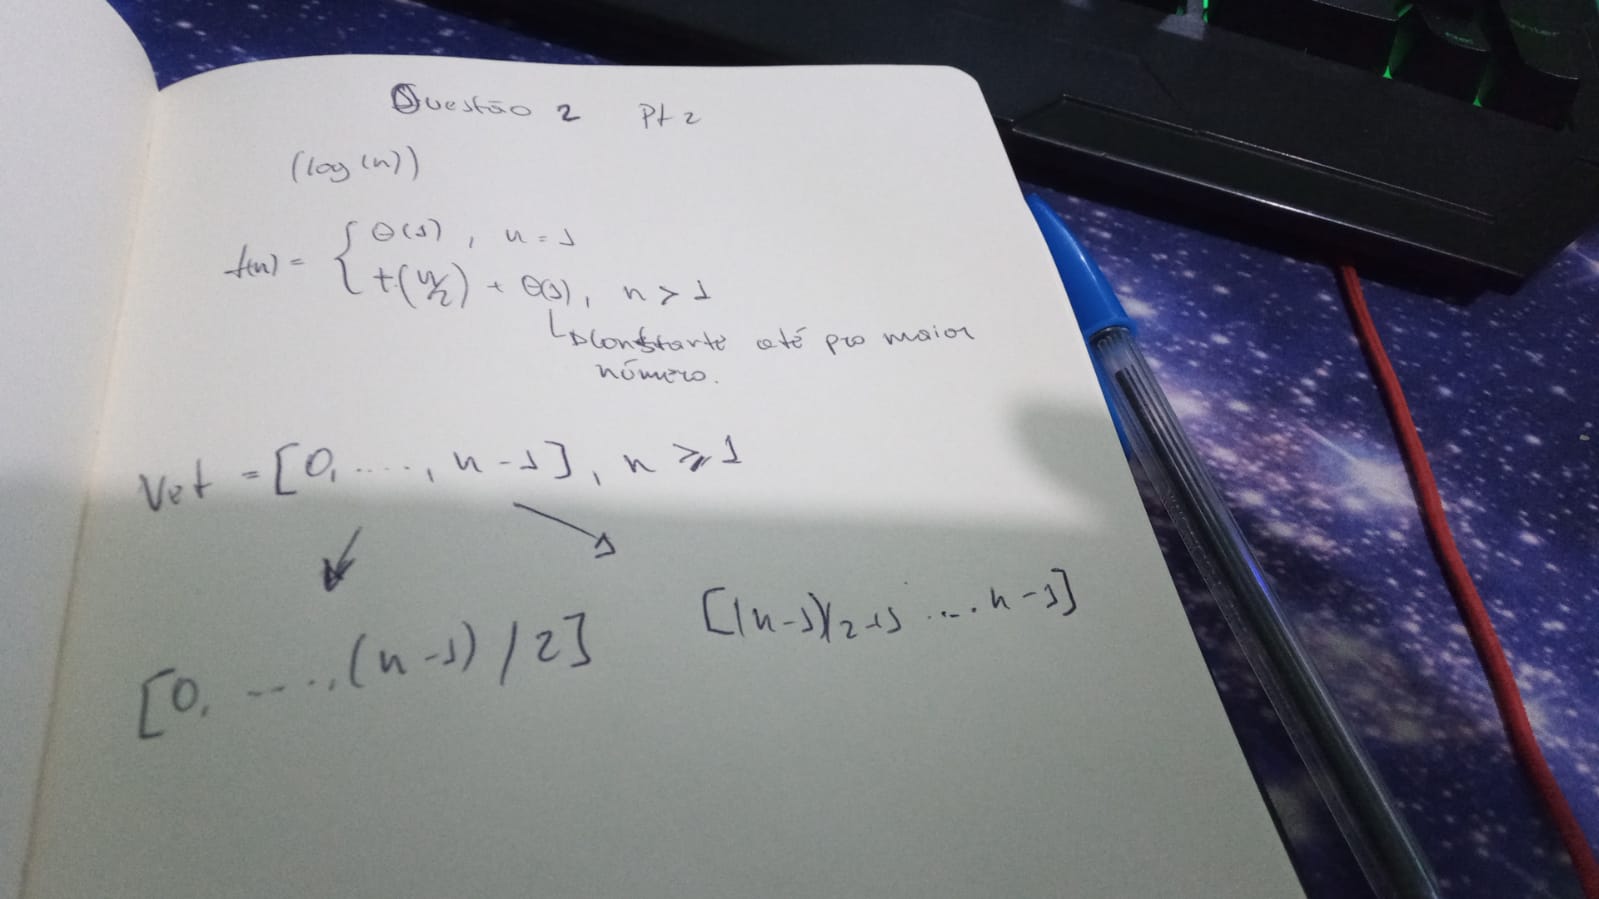 Questão 2 Pt 2
(log(n))
t(n) = { Θ(1), n = 1
t(n/2) + Θ(1), n > 1
↳ Constante até pro maior
número.
Vet = [0, ...., n - 1], n ≥ 1
[(n-1)/2+1 .... n-1]
[0, ....,(n-1)/2]